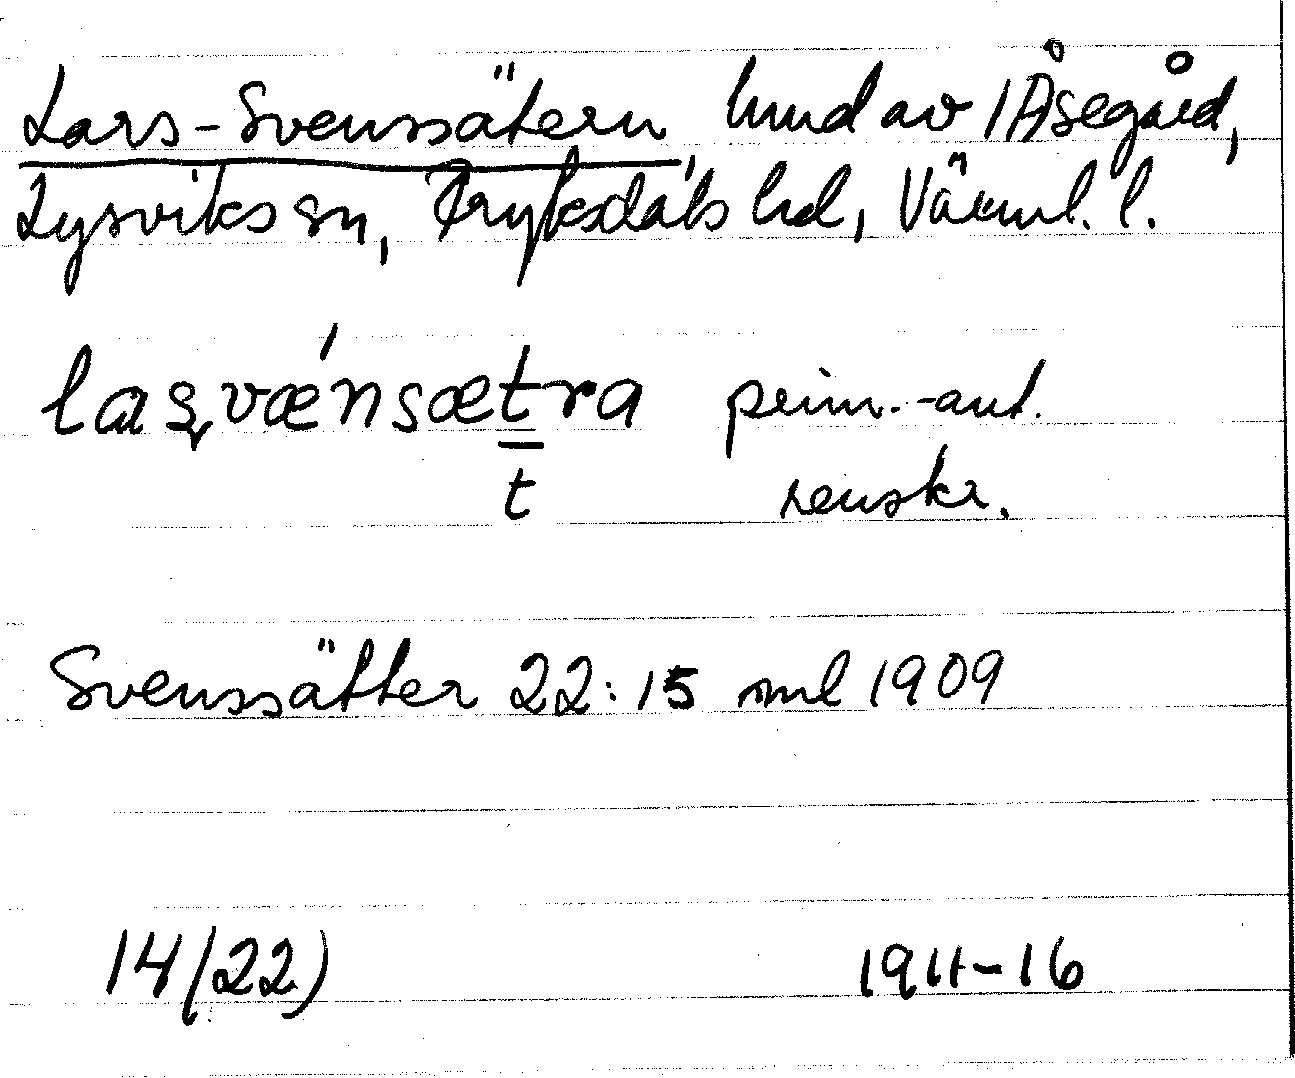 Lars-Svenssätern, hmd av 1 Åsegård,
Lysviks sn, Fryksdals hd, Värml. l.
laʂvǽnsætra prim.-ant.
t renskr.
Svenssätter 22:15 sml 1909
14(22) 1911-16